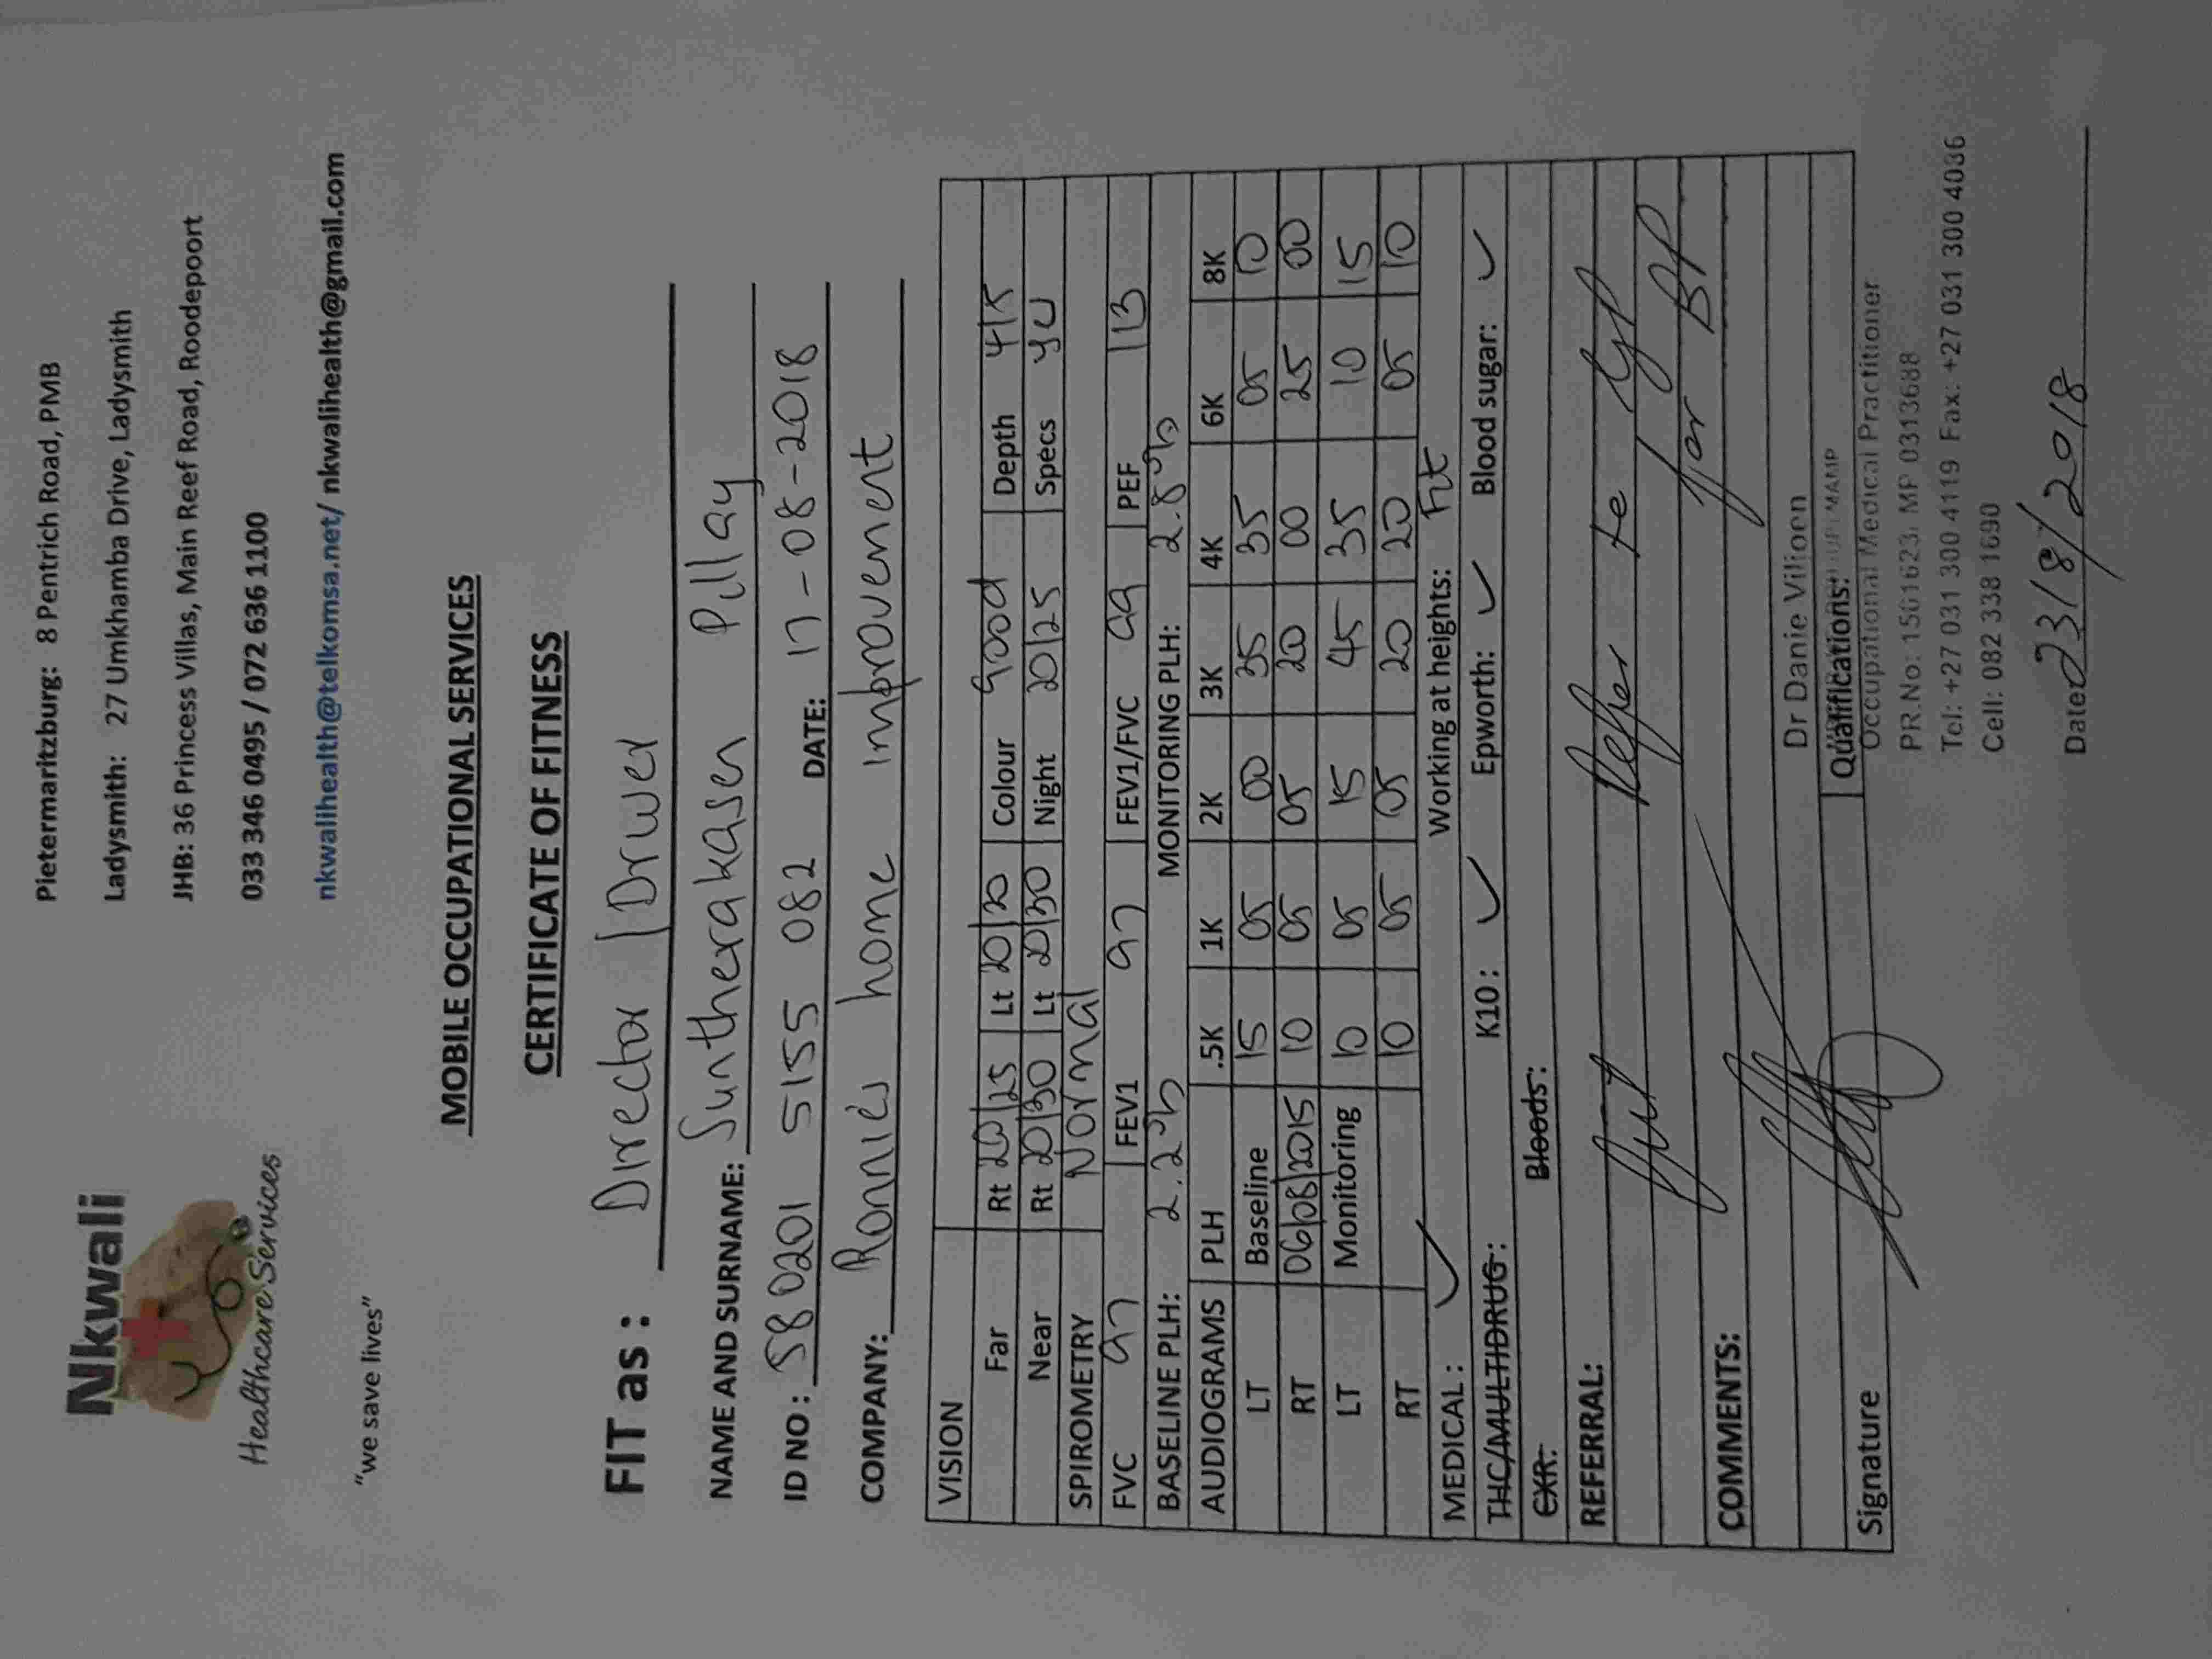 Nkwali
Healthcare Services
"we save lives"
Pietermaritzburg: 8 Pentrich Road, PMB
Ladysmith: 27 Umkhamba Drive, Ladysmith
JHB: 36 Princess Villas, Main Reef Road, Roodepoort
033 346 0495 / 072 636 1100
nkwalihealth@telkomsa.net/ nkwalihealth@gmail.com
MOBILE OCCUPATIONAL SERVICES
CERTIFICATE OF FITNESS
FIT as : Director / Driver
NAME AND SURNAME: Suntherakasen Pillay
ID NO : 580201 5155 082 DATE: 17-08-2018
COMPANY: Ronnies home improvement
VISION
Far Rt 20/25 Lt 20/20 Colour good Depth 4/5
Near Rt 20/30 Lt 20/30 Night 20/25 Specs yes
SPIROMETRY Normal
FVC 97 FEV1 97 FEV1/FVC 99 PEF 113
BASELINE PLH: 2.2% MONITORING PLH: 2.8%
AUDIOGRAMS PLH .5K 1K 2K 3K 4K 6K 8K
LT Baseline 15 05 00 35 35 05 10
RT 06/08/2015 10 05 05 20 00 25 00
LT Monitoring 10 05 15 45 35 10 15
RT 10 05 05 20 20 05 10
MEDICAL : ✓ Working at heights: Fit
THC/MULTIDRUG : K10 : ✓ Epworth: ✓ Blood sugar: ✓
CXR: Bloods:
REFERRAL:
Fit Refer to GP
for BP
COMMENTS:
Dr Danie Viljoen
Signature Qualifications:
Occupational Medical Practitioner
PR.No: 1561623, MP 0313688
Tel: +27 031 300 4119 Fax: +27 031 300 4036
Cell: 082 338 1690
Date 23/8/2018